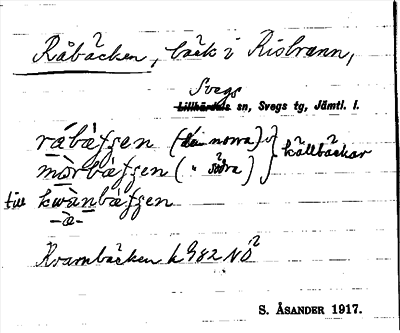 Råbäcken, bäck i Risbrann,
Svegs
Lillhärdals sn, Svegs tg, Jämtl. l.
råbäfsen (den norra)
mòrbäfsen ( " södra) källbäckar
till kwànbäfsen
-ä-
Kvarnbäcken k 982 NÖ2
S. ÅSANDER 1917.